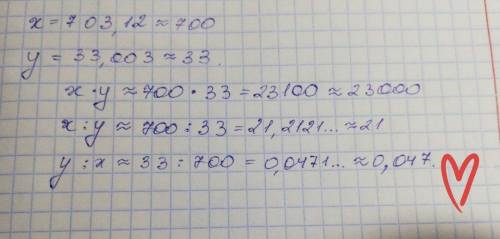 x = 703,12 ≈ 700
y = 33,003 ≈ 33.
x · y ≈ 700 · 33 = 23100 ≈ 23000
x : y ≈ 700 : 33 = 21,2121... ≈ 21
y : x ≈ 33 : 700 = 0,0471... ≈ 0,047.